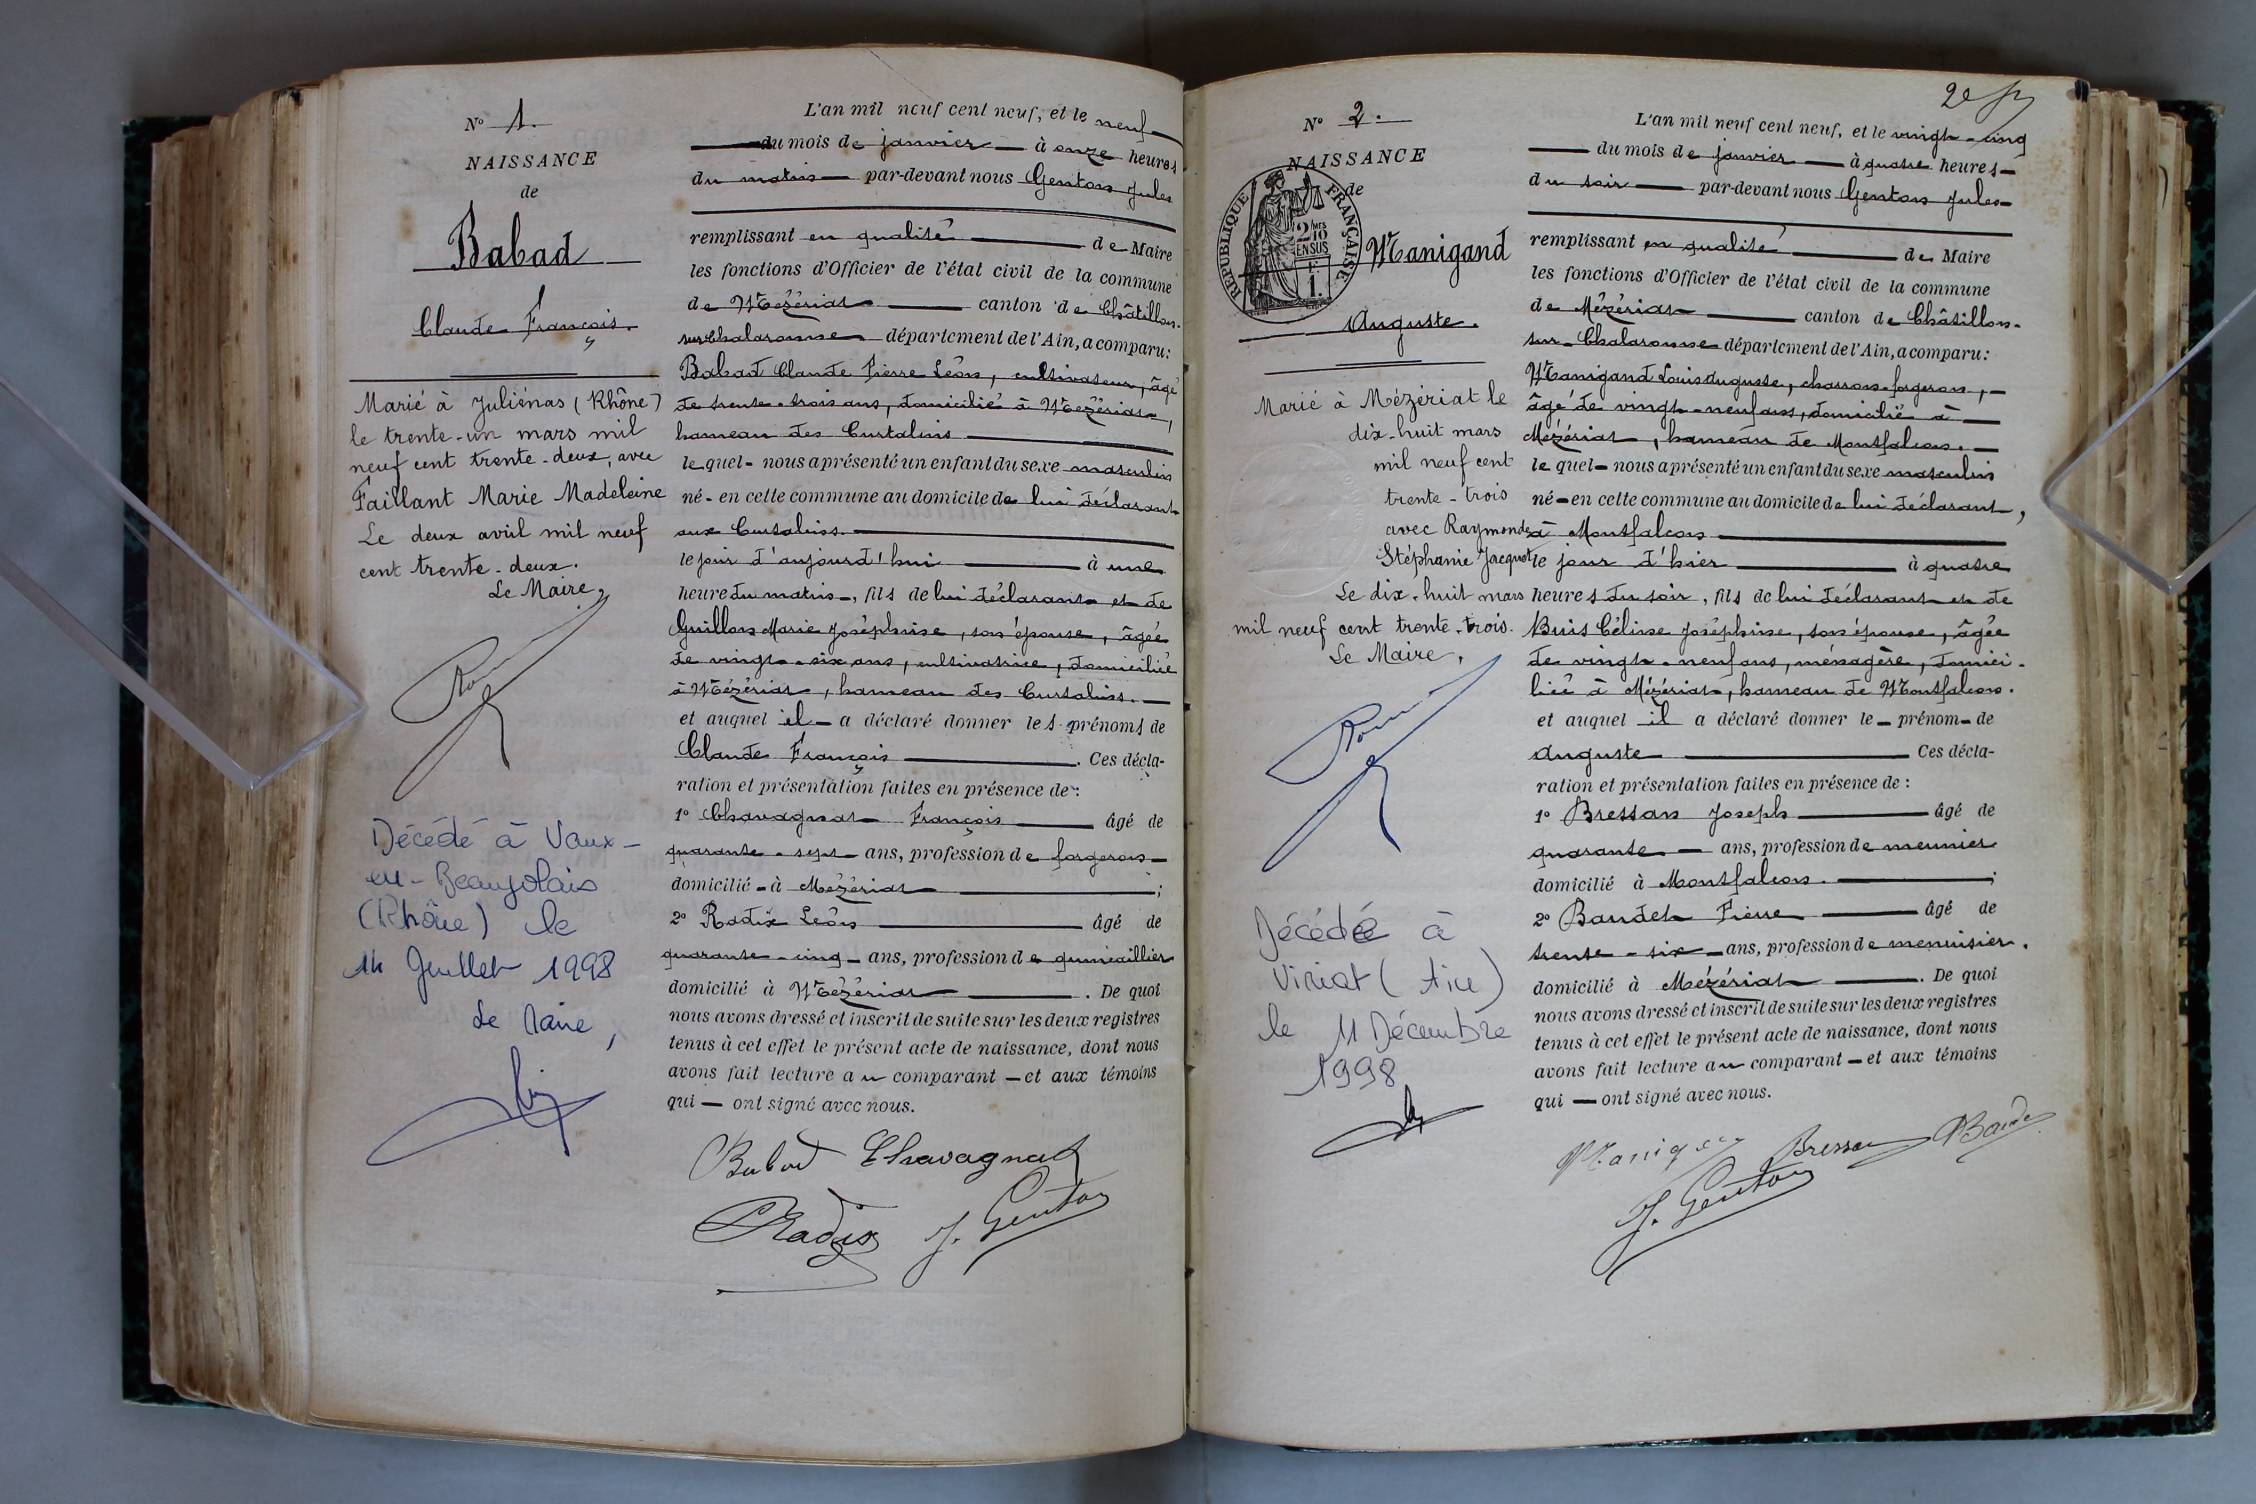 N° 1.
NAISSANCE
de
Babad
Claude François.
Marié à Juliénas (Rhône)
le trente-un mars mil
neuf cent trente-deux, avec
Faillant Marie Madeleine
Le deux avril mil neuf
cent trente-deux.
Le Maire,
Décédé à Vaux-
en-Beaujolais
(Rhône) le
14 Juillet 1998
Le Maire,
L'an mil neuf cent neuf, et le neuf
du mois de janvier à onze heures
du matin par-devant nous Genton Jules
remplissant en qualité de Maire
les fonctions d'Officier de l'état civil de la commune
de Mézériat canton de Châtillon-
sur-Chalaronne département de l'Ain, a comparu:
Babad Claude Pierre Léon, cultivateur, âgé
de trente-trois ans, domicilié à Mézériat,
hameau des Curtalins
lequel nous a présenté un enfant du sexe masculin
né en cette commune au domicile de lui déclarant
aux Curtalins.
le jour d'aujourd'hui à une
heure du matin, fils de lui déclarant et de
Guillon Marie Joséphine, son épouse, âgée
de vingt-six ans, cultivatrice, domiciliée
à Mézériat, hameau des Curtalins.
et auquel il a déclaré donner les prénoms de
Claude François. Ces décla-
ration et présentation faites en présence de :
1° Chavagnat François âgé de
quarante-sept ans, profession de forgeron
domicilié à Mézériat ;
2° Radix Léon âgé de
quarante-cinq ans, profession de quincaillier
domicilié à Mézériat. De quoi
nous avons dressé et inscrit de suite sur les deux registres
tenus à cet effet le présent acte de naissance, dont nous
avons fait lecture au comparant et aux témoins
qui ont signé avec nous.
Babad Chavagnat
Radix J. Genton
2e
N° 2.
NAISSANCE
de
RÉPUBLIQUE FRANÇAISE
2/10
EN SUS
1.
Manigand
Auguste.
Marié à Mézériat le
dix-huit mars
mil neuf cent
trente-trois
avec Raymonde
Stéphanie Jacquet
Le dix-huit mars
mil neuf cent trente-trois.
Le Maire,
Décédé à
Viriat (Ain)
le 11 Décembre
1998
L'an mil neuf cent neuf, et le vingt-cinq
du mois de janvier à quatre heures
du soir par-devant nous Genton Jules
remplissant en qualité de Maire
les fonctions d'Officier de l'état civil de la commune
de Mézériat canton de Châtillon-
sur-Chalaronne département de l'Ain, a comparu:
Manigand Louis Auguste, charron-forgeron,
âgé de vingt-neuf ans, domicilié à
Mézériat, hameau de Montfalcon.
lequel nous a présenté un enfant du sexe masculin
né en cette commune au domicile de lui déclarant,
à Montfalcon
le jour d'hier à quatre
heures du soir, fils de lui déclarant et de
Buis Céline Joséphine, son épouse, âgée
de vingt-neuf ans, ménagère, domici-
liée à Mézériat, hameau de Montfalcon.
et auquel il a déclaré donner le prénom de
Auguste Ces décla-
ration et présentation faites en présence de :
1° Bressan Joseph âgé de
quarante ans, profession de meunier
domicilié à Montfalcon. ;
2° Baudet Pierre âgé de
trente-six ans, profession de menuisier.
domicilié à Mézériat. De quoi
nous avons dressé et inscrit de suite sur les deux registres
tenus à cet effet le présent acte de naissance, dont nous
avons fait lecture au comparant et aux témoins
qui ont signé avec nous.
Manigand Bressan Baudet
J. Genton